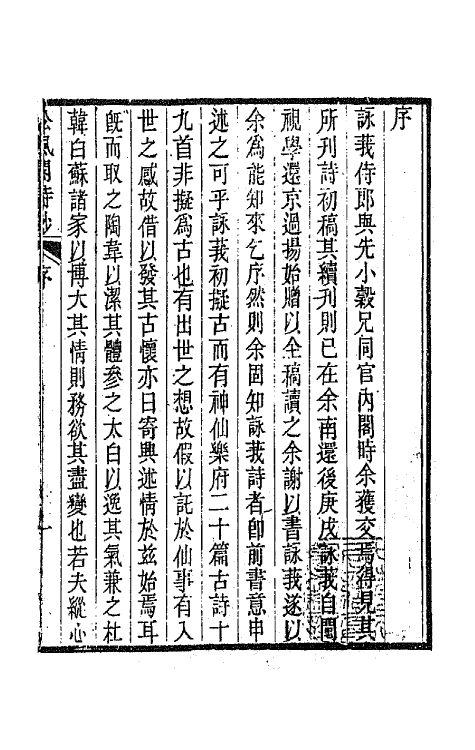 序
詠莪侍郎與先小穀兄同官內閣時余獲交焉得見其
所刊詩初稿其續刊則已在余南還後庚戌詠莪自閩
視學還京過揚始贈以全稿讀之余謝以書詠莪遂以
余爲能知來乞序然則余固知詠莪詩者卽前書意申
述之可乎詠莪初擬古而有神仙樂府二十篇古詩十
九首非擬爲古也有出世之想故假以託於仙事有入
世之感故借以發其古懷亦曰寄興述情於兹始焉耳
旣而取之陶韋以潔其體參之太白以逸其氣兼之杜
韓白蘇諸家以博大其情則務欲其盡變也若夫縱心
松風閣詩抄
序
一